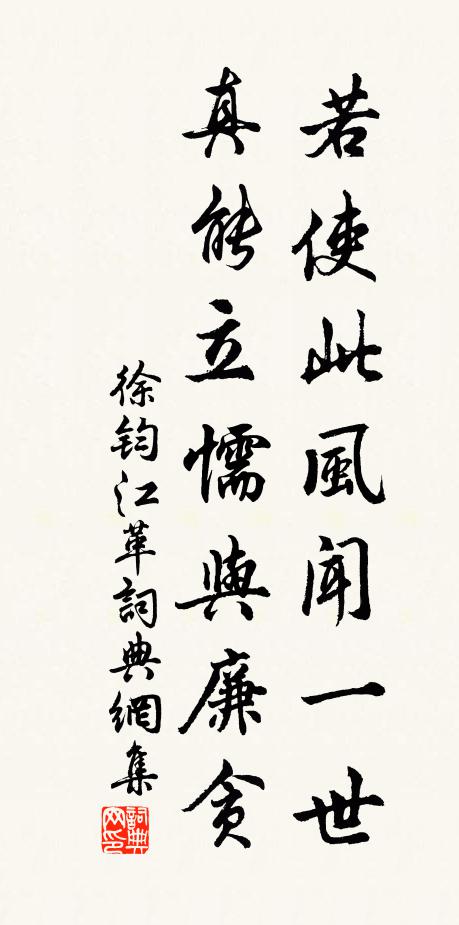 若使此風闻一世
真能立懦與廉貪
徐鈞江革詞典網集
詞典网印